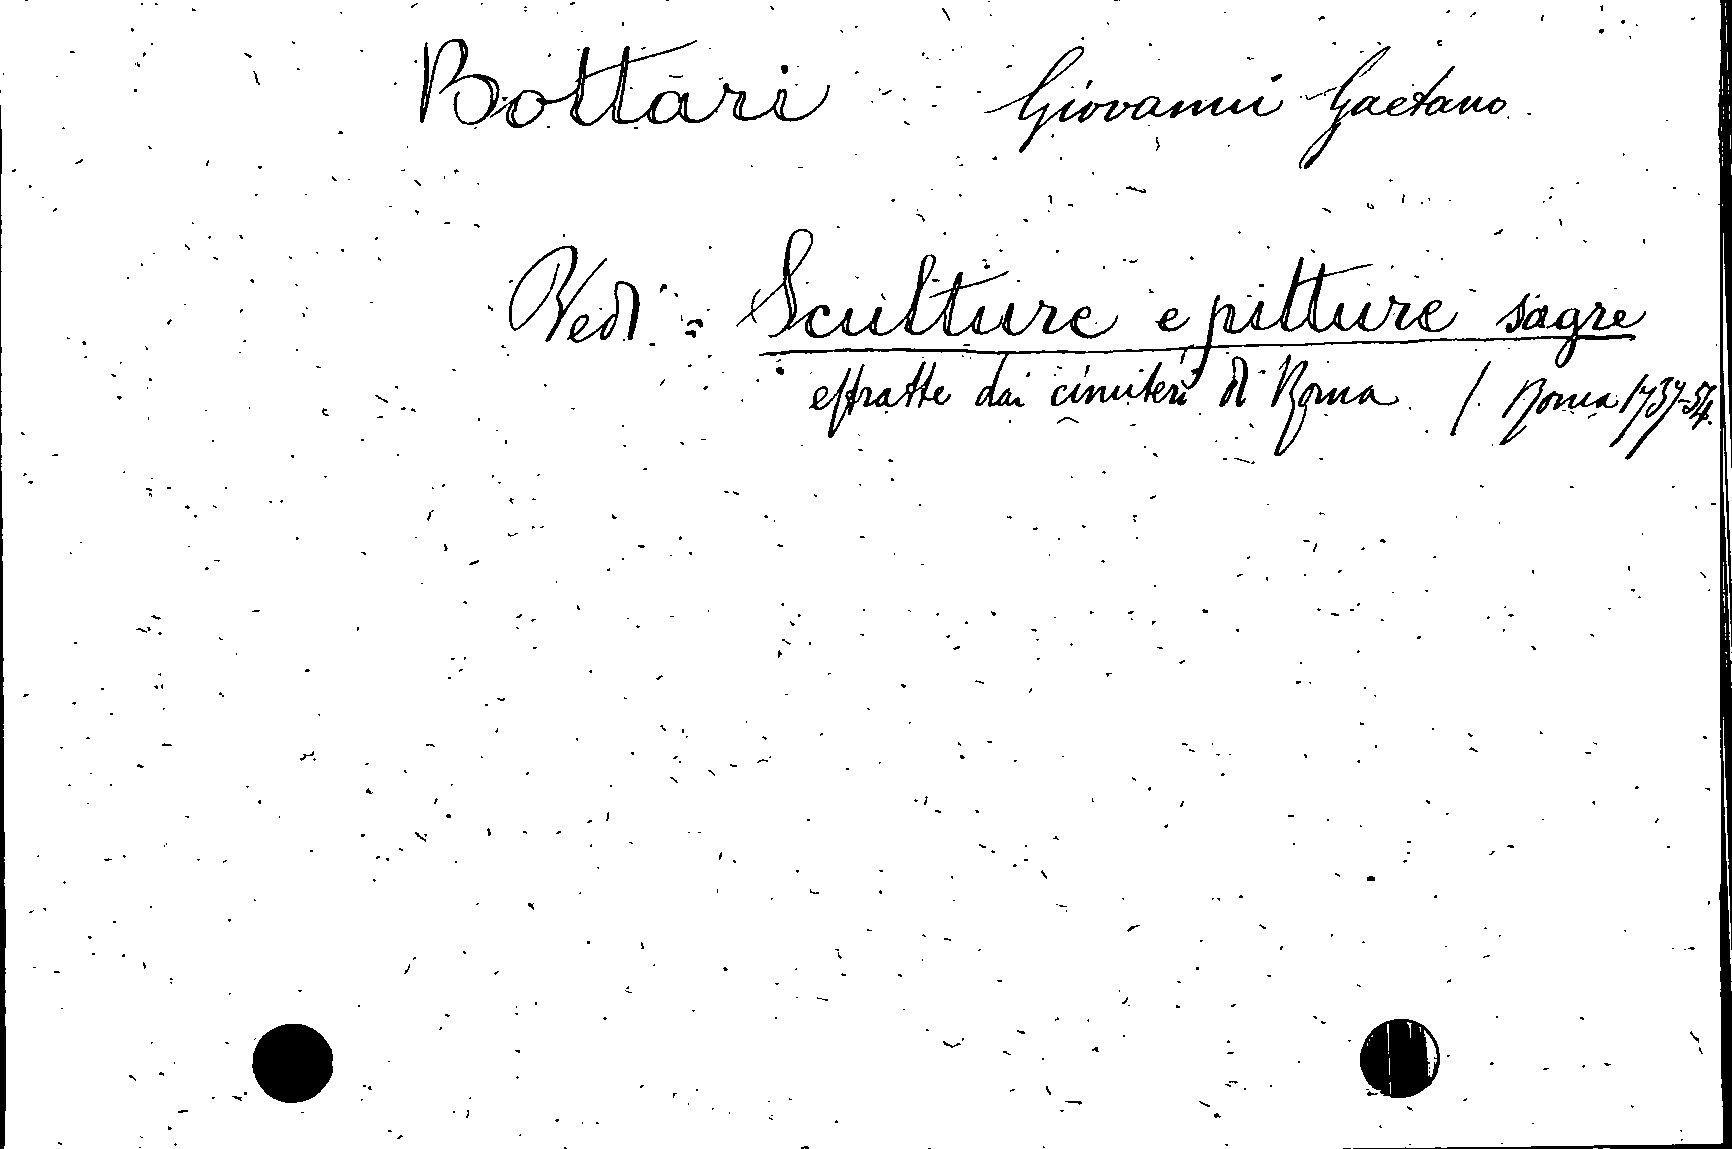 Bottari Giovanni Gaetano
Vedi = Sculture e pitture sagre
estratte dai cimiteri di Roma /. Roma 1737-54.